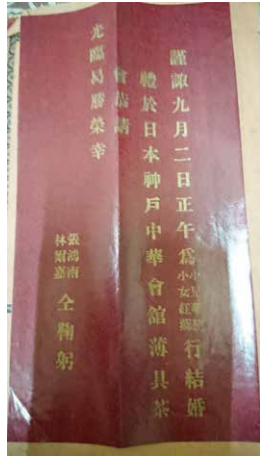 謹諏九月二日正午爲小兒華小女紅蕖行結婚
禮於日本神戶中華會館薄具茶
會恭請
光臨曷勝榮幸
張鴻南
林爾嘉
仝鞠躬